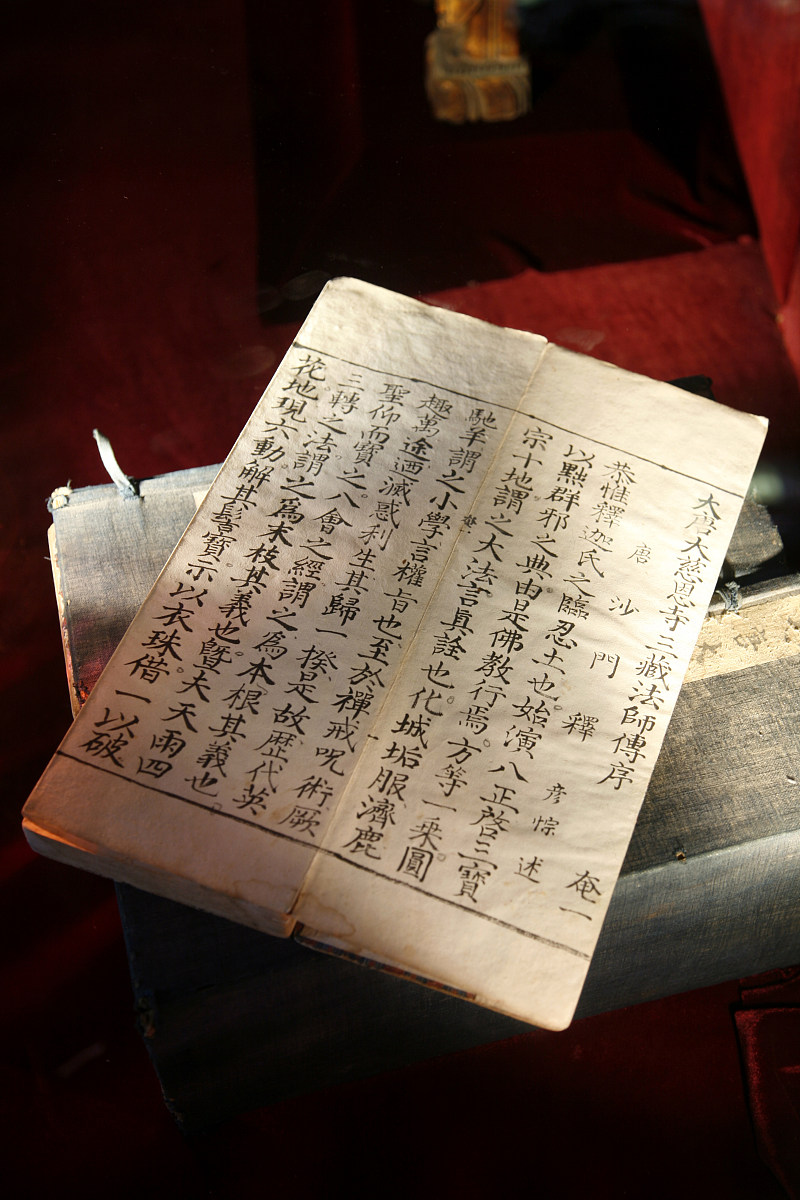 大唐大慈恩寺三藏法師傳序 奄一
唐沙門釋彥悰述
恭惟釋迦氏之臨忍土也始演八正啓三寶
以點群邪之典由是佛教行焉方等一乘圓
宗十地謂之大法言眞詮也化城垢服濟鹿
馳羊謂之小學言權旨也至於禪戒呪術厥
趣萬途迺滅惑利生其歸一揆是故歴代英
聖仰而寶之八會之經謂之為本根其義也
三轉之法謂之為末枝其義也暨大天雨四
花地現六動解其髻寶示以衣珠借一以破